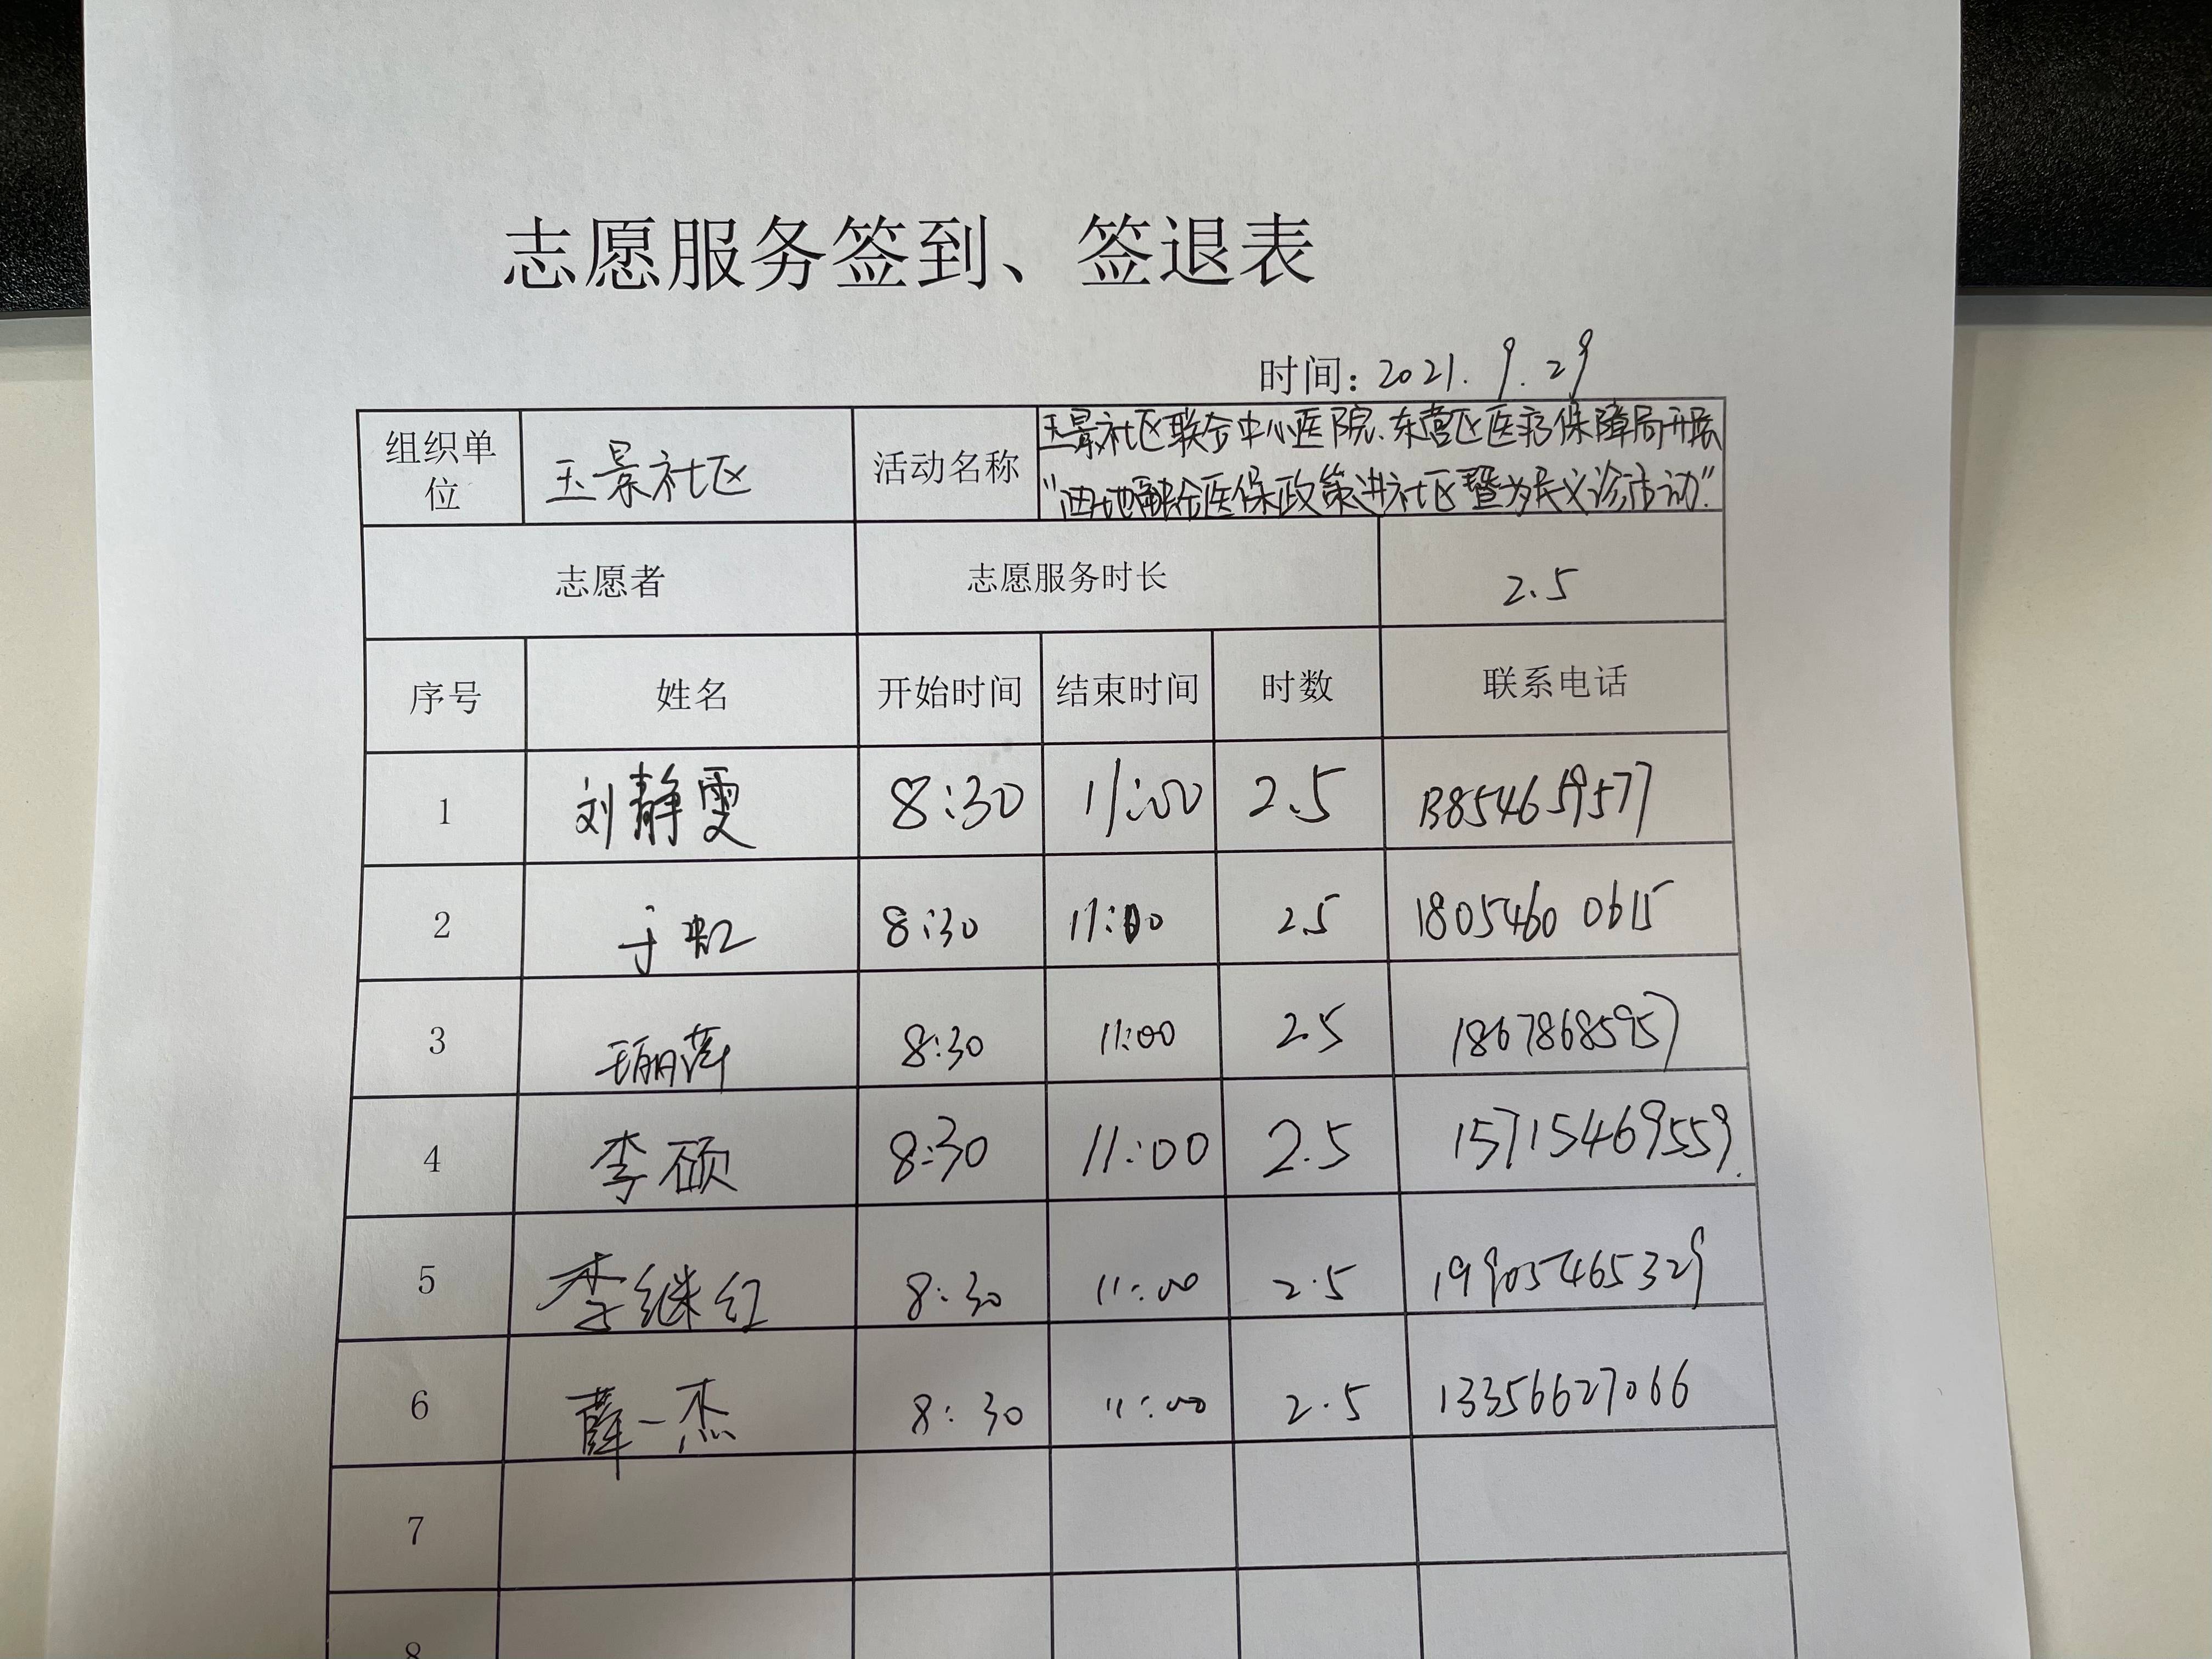 志愿服务签到、签退表
时间：2021.9.29
组织单位 玉景社区 活动名称 玉景社区联合中心医院、东营区医疗保障局开展
"两地融合医保政策进社区暨为民义诊活动"
志愿者 志愿服务时长 2.5
序号 姓名 开始时间 结束时间 时数 联系电话
1 刘静雯 8:30 11:00 2.5 13854659577
2 于 8:30 11:00 2.5 18054600615
3 8:30 11:00 2.5 18678685957
4 李硕 8:30 11:00 2.5 15715469559
5 李继红 8:30 11:00 2.5 19905465329
6 薛一杰 8:30 11:00 2.5 13356627066
7
8